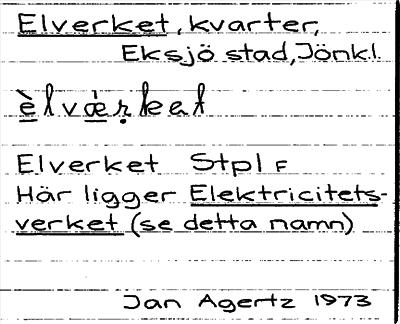 Elverket, kvarter,
Eksjö stad, Jönk.l.
èlvæ̀ṛket
Elverket Stpl F
Här ligger Elektricitets-
verket (se detta namn)
Jan Agertz 1973